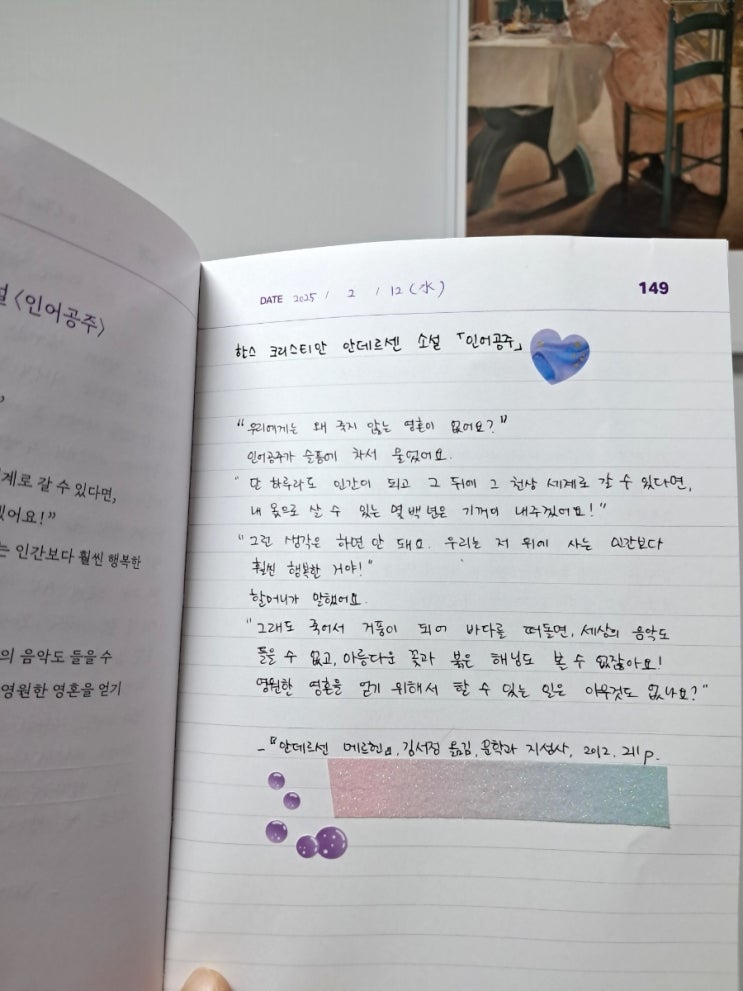 설 〈인어공주〉
”
계로 갈 수 있다면,
겠어요!”
는 인간보다 훨씬 행복한
의 음악도 들을 수
영원한 영혼을 얻기
DATE 2025 / 2 / 12 (水)
149
한스 크리스티안 안데르센 소설 「인어공주」
“우리에게는 왜 죽지 않는 영혼이 없어요?”
인어공주가 슬픔에 차서 물었어요.
“단 하루라도 인간이 되고 그 뒤에 그 천상 세계로 갈 수 있다면,
내 몫으로 살 수 있는 몇 백 년은 기꺼이 내주겠어요!”
“그런 생각은 하면 안 돼요. 우리는 저 위에 사는 인간보다
훨씬 행복한 거야!”
할머니가 말했어요.
“그래도 죽어서 거품이 되어 바다를 떠돌면, 세상의 음악도
들을 수 없고, 아름다운 꽃과 붉은 해님도 볼 수 없잖아요!
영원한 영혼을 얻기 위해서 할 수 있는 일은 아무것도 없나요?”
-『안데르센 메르헨』, 김서정 옮김, 문학과 지성사, 2012. 211p.